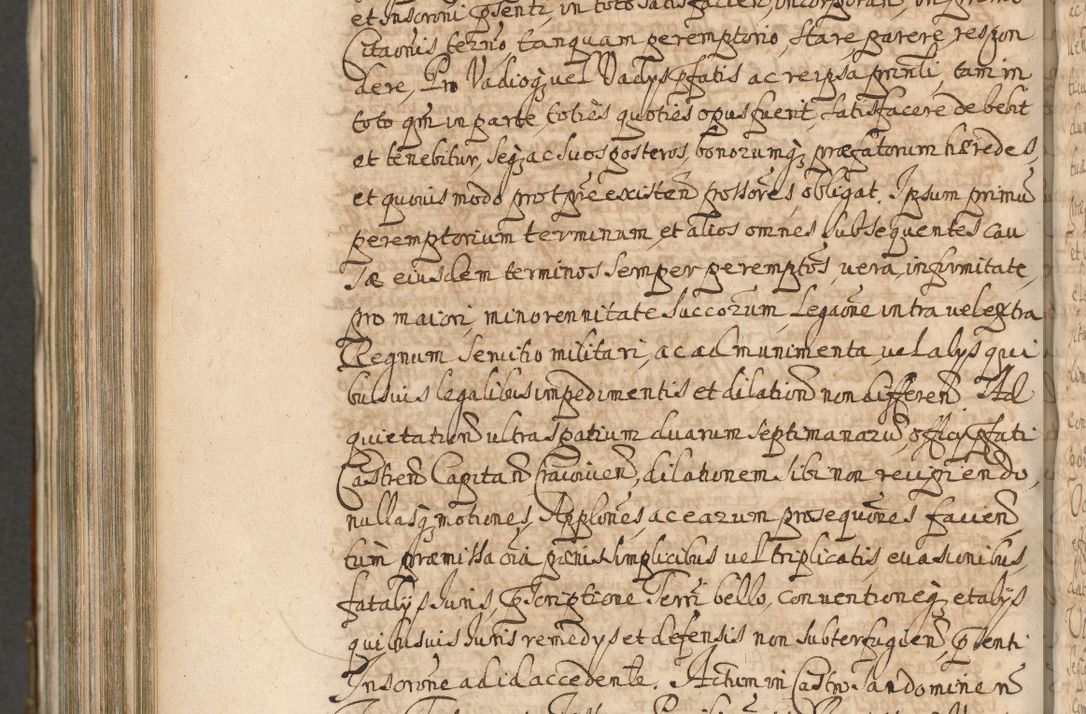 et Inscroni psenti, in toto satisfacien, incorporan, in primo
Citaonis termo, tanquam peremptorio, stare, parere, respon
dere, Pro Vadioq, vel Vadys pfatis ac reipsa prinli, tam in
toto qm in parte, toties quoties opus fuerit, satisfacere debebit
et tenebitur, Seq, ac Suos posteros, bonorumq, præfatorum hæredes,
et quovis modo pro tpre existen possores obligat. Ipsum primu
peremptorium terminum, et alios omnes subsequentes cau
sæ eiusdem terminos semper peremptos, vera infirmitate,
pro maiori, minorennitate Succorum, Legaone intra vel extra
Regnum Servitio militari, ac ad munimenta vel alys qui
busuis legalibus impedimentis et dilation non differen Ad
quietation ultra spatium duarum septimanaru, officy pfati
Castren Capitan Cracovien, dilationem sibi non recipiendo,
nullasq motiones, Applones ac earum prosequones facien
tum præmissa oia pænis simplicibus vel triplicatis, evasionibus,
fatalys Juris, pscriptione Terri bello, conventioneq, et alys
quibusuis Juris remedys et defensis non subterfugien, psenti
Inscrone ad id accedente. Actum in Castro Sandomirien